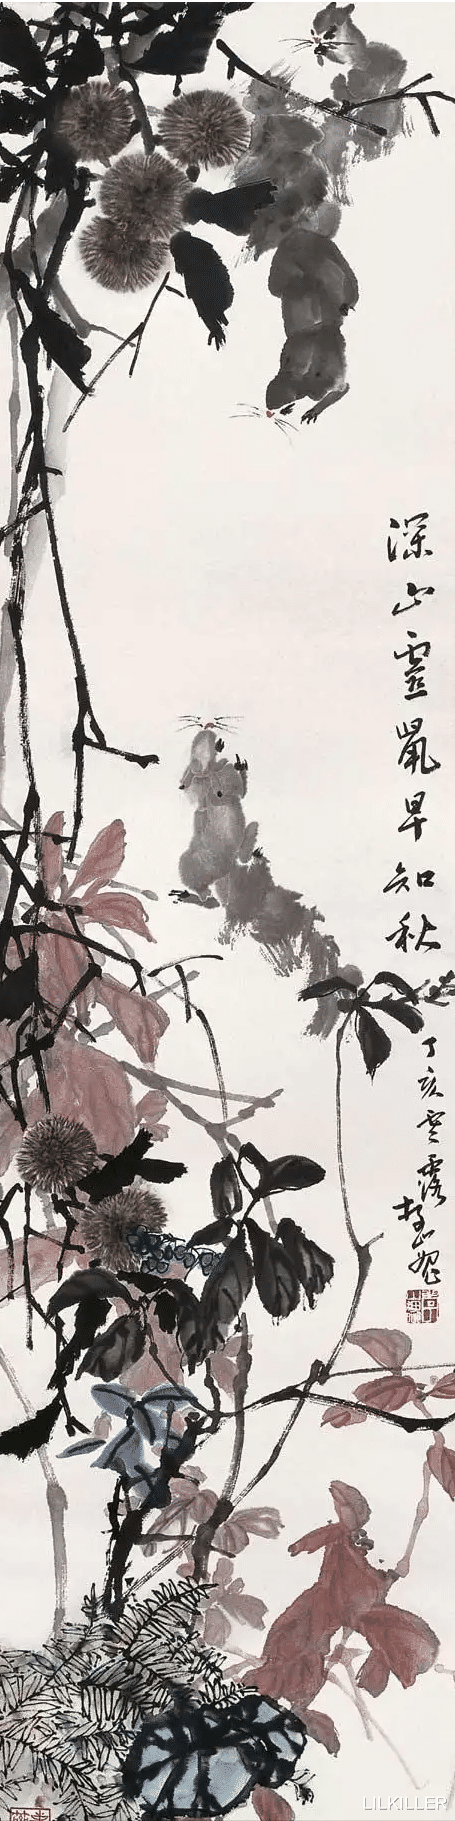 深山靈鼠早知秋
丁亥寒露
LILKILLER